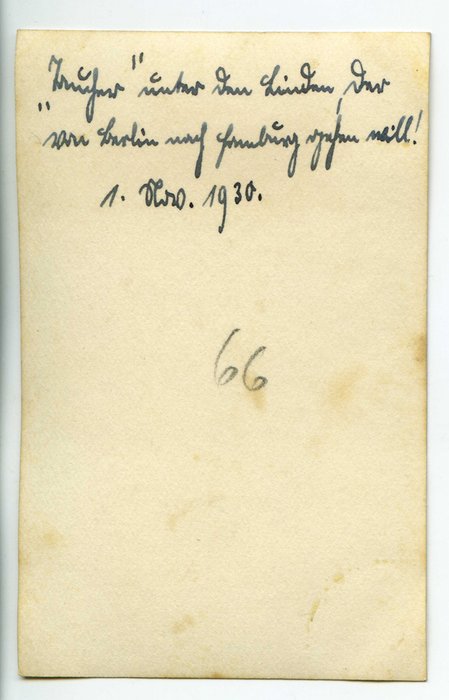 „Taucher" unter den Linden, der
von Berlin nach Hamburg gehen will!
1. Nov. 1930.
66